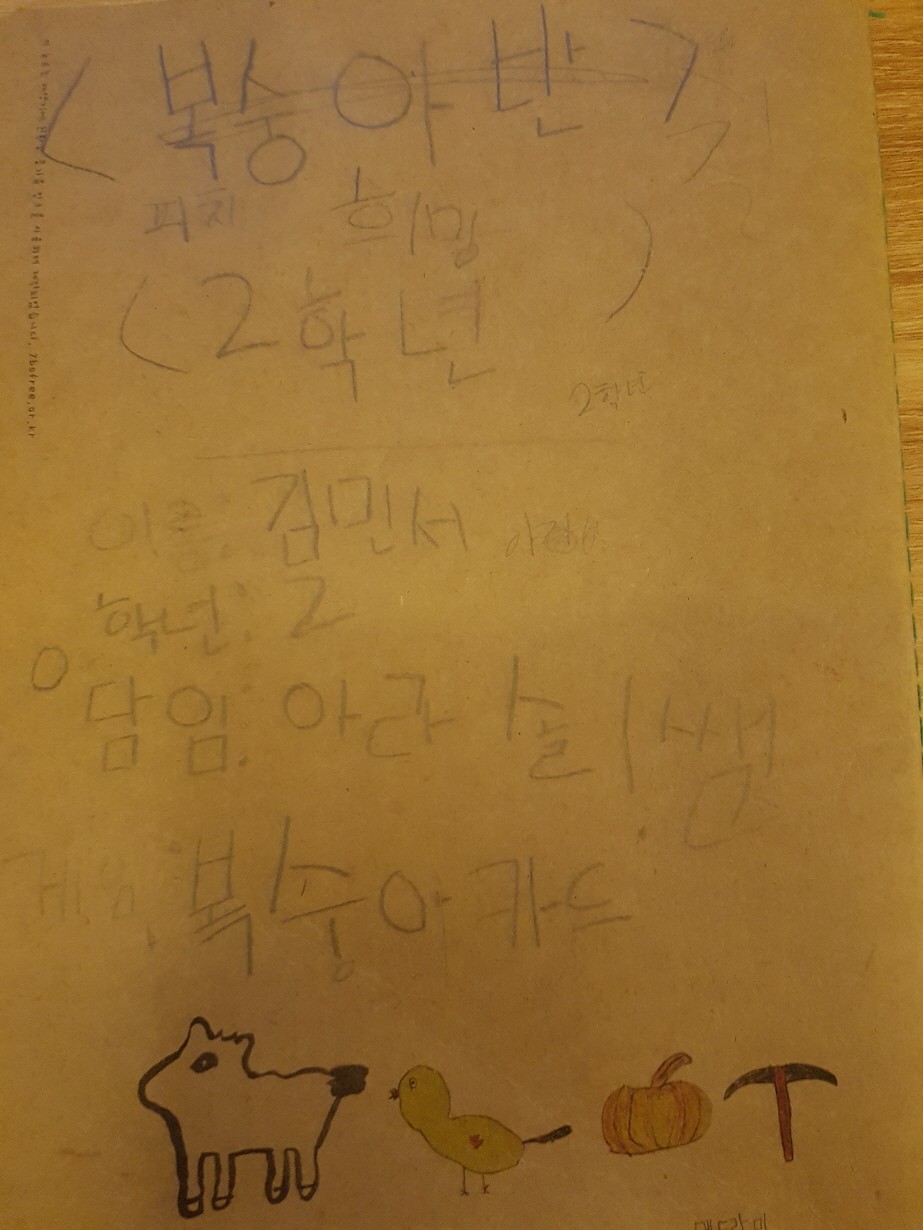 (복숭아반)
피치 희망
(2학년 )
2학년
이름: 김민서
학년: 2
담임: 아라 솔 | 쌤
게임: 복숭아카드